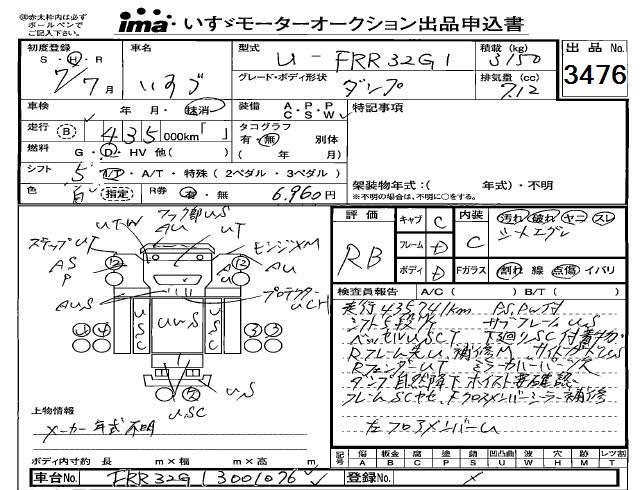 ㊟赤太枠内は必ず
ボールペンで
ご記入下さい。
ima いすゞモーターオークション出品申込書
初度登録 S・H・R 7/7月
車名 いすゞ
型式 U-FRR32G1
積載(kg) 3150
出品No. 3476
グレード・ボディ形状 ダンプ
排気量(cc) 7.12
車検 年 月・抹消
装備 A・P・P C・S・W
特記事項
走行 B 435,000km「 」
タコグラフ 有・無 別体 ( 年 月)
燃料 G・D・HV 他( )
シフト 5 F/P・A/T・特殊(2ペダル・3ペダル)
架装物年式:( 年式)・不明
※不明の場合は、不明に○をする。
色 白 指定 R券 有・無 6,960円
評価 RB
キャブ C
フレーム D
ボディ D
内装 C
Fガラス
汚れ 破れ ヤニ スレ
シートエグレ
割れ 線 点傷 イバリ
フック部US
AU
UTW
UT
ステップUT
AS
P
エンジンXM
AU
AUS
プロテクターUCH
USC
UUS
USC
US
USC
12 12
4 4 3 3
2 2
検査員報告 A/C( ) B/T( )
走行435741km P.S,P.W付
シフト5段M/T サブフレームUS
ベッセルUSCT 下回りSC付着物
Rフレーム先U、補修M サイドガードUS
RフェンダーUT ミラーカバーハズレ
ダンプ自然降下ホイスト要確認
フレームSCヤセ、Fクロスメンバーミラー補修
左フロアメンバーU
上物情報
メーカー年式不明
ボディ内寸約 長 m×幅 m×高 m
記号 傷 A 板金 B 腐 C 塗 P 錆 S 凹凸曲 U 波 W 穴 H 跡 M レツ割 T
車台No. FRR32G1 3001076
登録No.